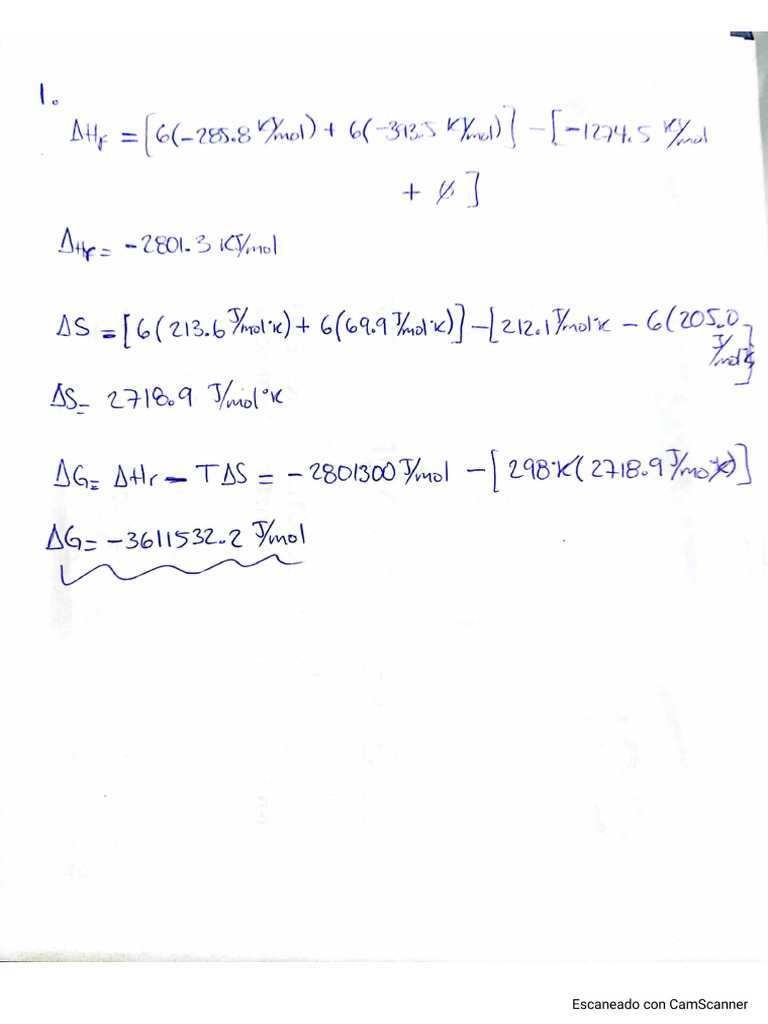 1.
ΔHr = [6(-285.8 KJ/mol) + 6(-393.5 KJ/mol)] - [-1274.5 KJ/mol
+ 0]
ΔHr = -2801.3 KJ/mol
ΔS = [6(213.6 J/mol°K) + 6(69.9 J/mol°K)] - [212.1 J/mol°K - 6(205.0
J/mol°K]
ΔS = 2718.9 J/mol°K
ΔG = ΔHr - TΔS = -2801300 J/mol - [298°K(2718.9 J/mol°K)]
ΔG = -3611532.2 J/mol
Escaneado con CamScanner